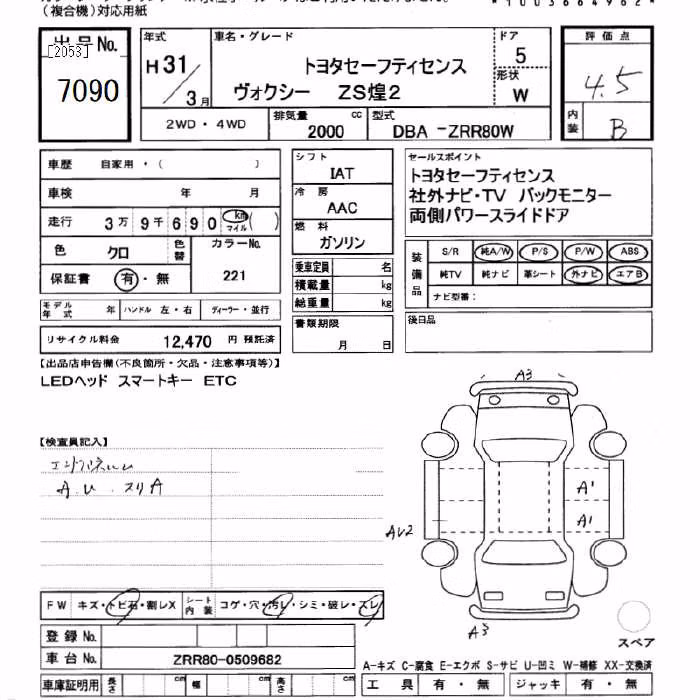 (複合機)対応用紙
*1003664962*
出品No.
[2053]
7090
年式
H31/3月
車名・グレード
トヨタセーフティセンス
ヴォクシー ZS煌2
ドア
5
形状
W
評価点
4.5
内装
B
2WD・4WD
排気量
2000 cc
型式
DBA -ZRR80W
車歴 自家用・( )
車検 年 月
走行 3万9千690 km マイル ( )
色 クロ
色替
カラーNo.
221
保証書 有・無
モデル年式 年
ハンドル 左・右
ディーラー・並行
リサイクル料金 12,470 円 預託済
シフト
IAT
冷房
AAC
燃料
ガソリン
乗車定員 名
積載量 kg
総重量 kg
書類期限
月 日
セールスポイント
トヨタセーフティセンス
社外ナビ・TV バックモニター
両側パワースライドドア
装備品
S/R 純A/W P/S P/W ABS
純TV 純ナビ 革シート 外ナビ エアB
ナビ型番:
後日品
【出品店申告欄(不良箇所・欠品・注意事項等)】
LEDヘッド スマートキー ETC
【検査員記入】
A.U スリA
A3
A1
A1
AU2
A3
スペア
FW キズ・トビ石・割レX
シート内装 コゲ・穴・汚レ・シミ・破レ・スレ
登録No.
車台No. ZRR80-0509682
車庫証明用 長さ cm 幅 cm 高さ cm
A-キズ C-腐食 E-エクボ S-サビ U-凹ミ W-補修 XX-交換済
工具 有・無 ジャッキ 有・無